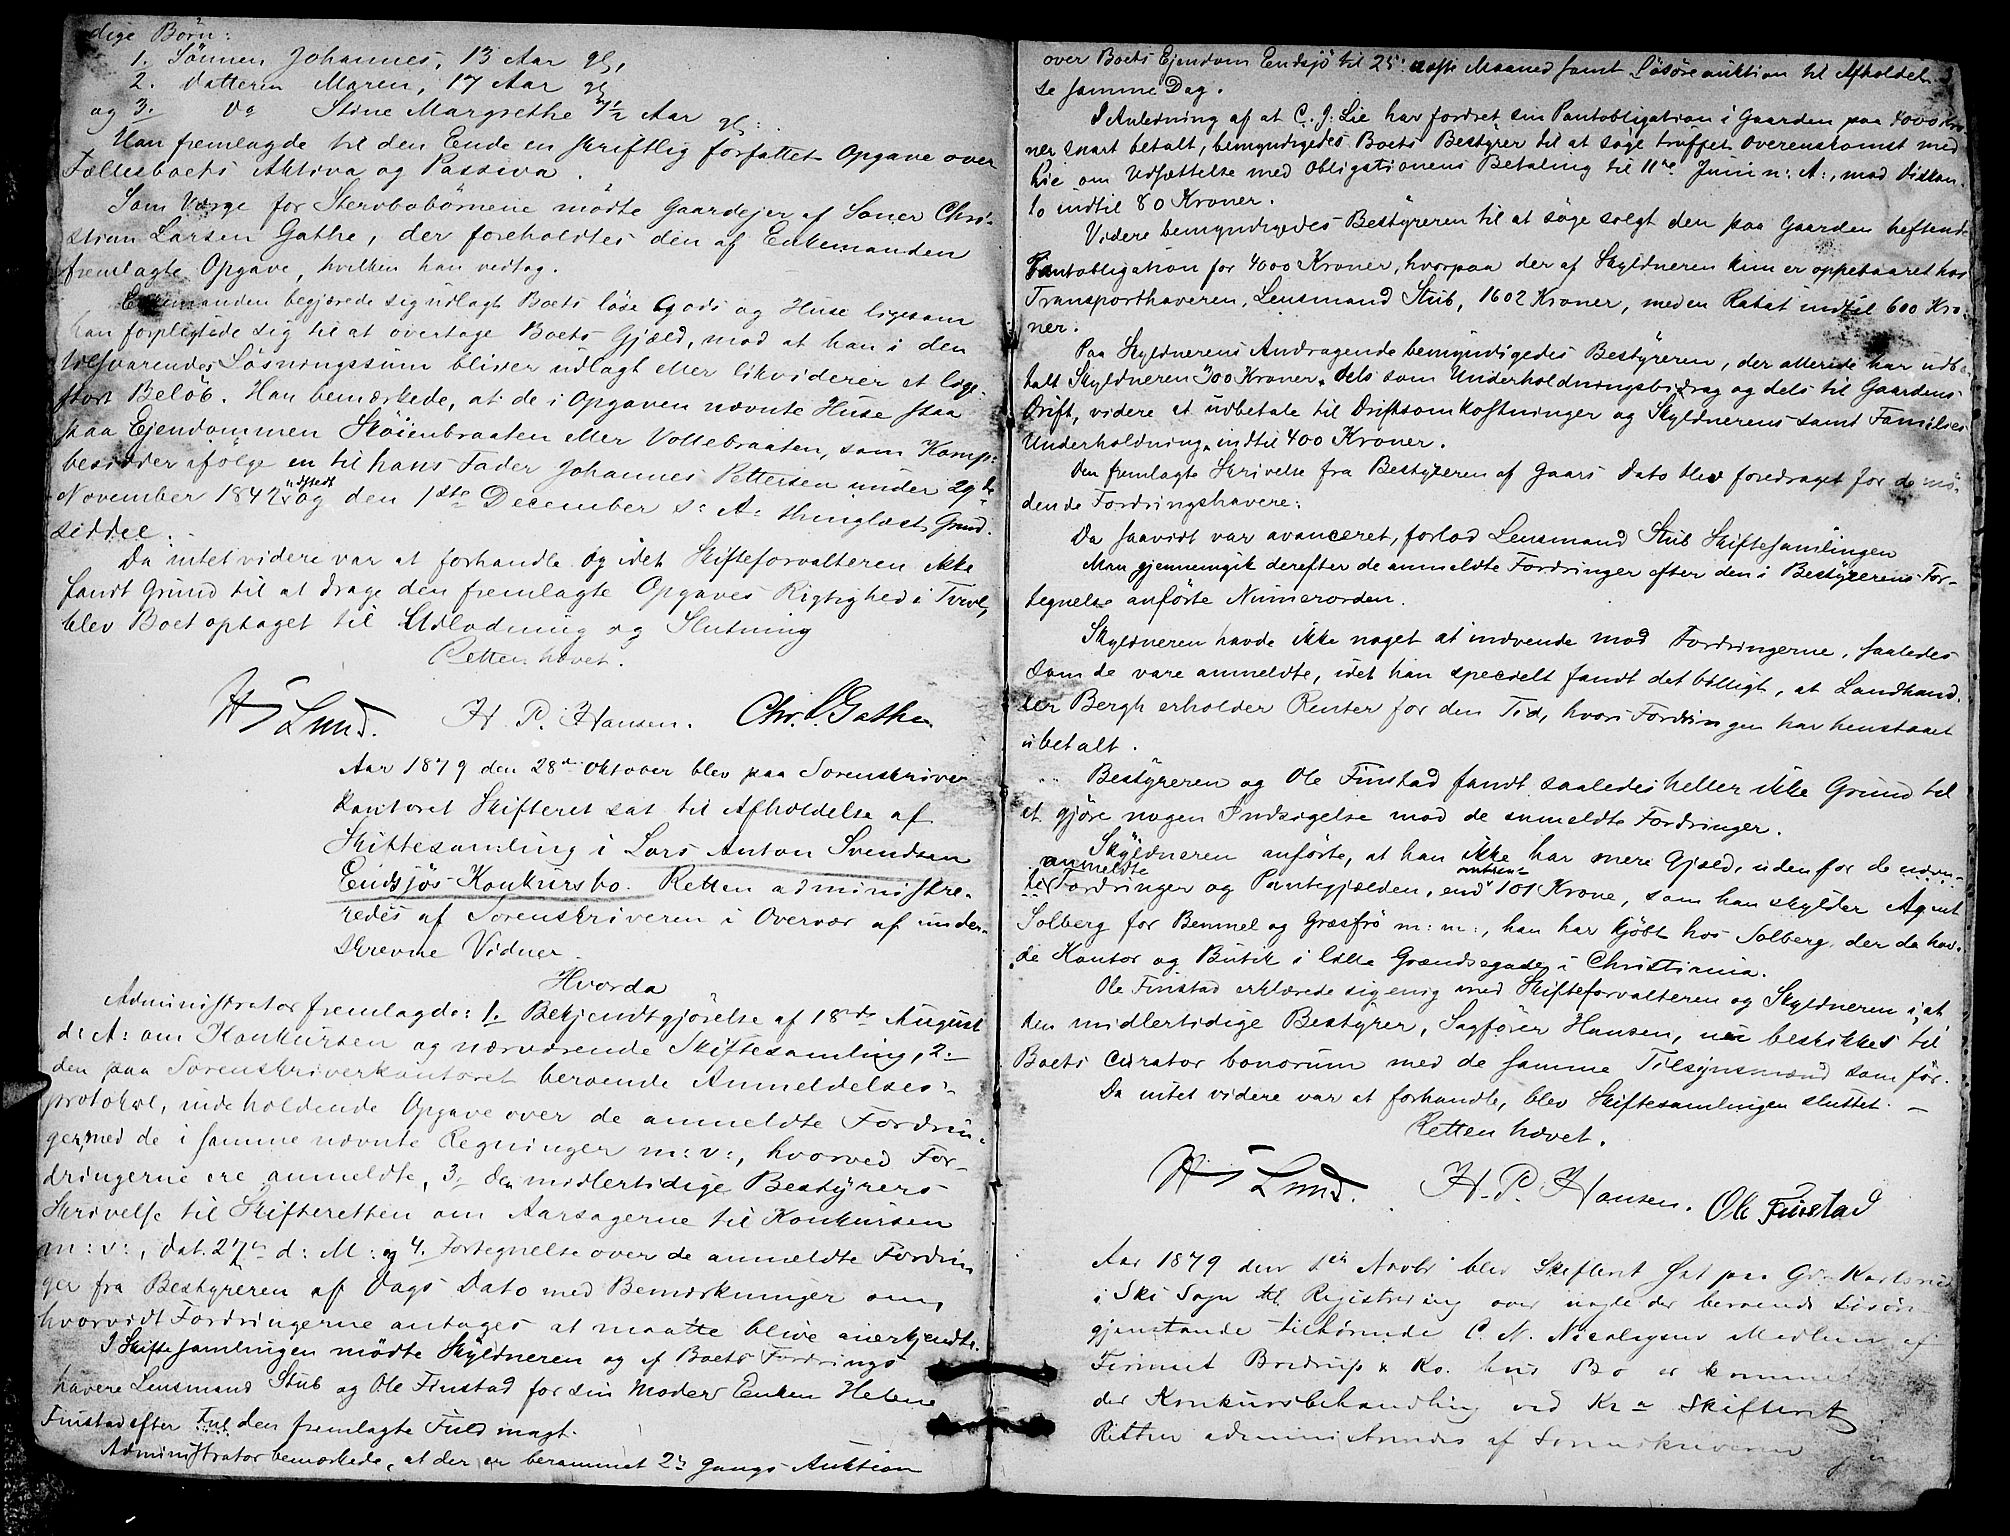 dige Börn:
1. Sönnen Johannes, 13 Aar gl,
2. Datteren Maren, 17 Aar gl
og 3. Do Stine Margrethe 7½ Aar gl:
Han fremlagde til den Ende en skriftlig forfattet Opgave over
Fællesboets Aktiva og Passiva.
Som Værge for Stervbobörnene mödte Gaardejer af Soner Chri-
stian Larsen Gathe, der foreholdtes den af Enkemanden
fremlagte Opgave, hvilken han vedtog.
Enkemanden begjærede sig udlagt Boets löse Gods og Huse ligesom
han forpligtede sig til at overtage Boets Gjæld, mod at han i den
tilsvarendes Lösningssum bliver udlagt eller likviderer et lige
stort Belöb. Han bemærkede, at de i Opgaven nævnte Huse staa
paa Ejendommen Sköienbraaten eller Vollebraaten, som Komp:
besidder ifölge en til hans Fader Johannes Pettersen under 29de
November 1842 udstedt og den 1ste December s: A: thinglæst Grund-
seddel.
Da intet videre var at forhandle og idet Skifteforvalteren ikke
fandt Grund til at drage den fremlagte Opgaves Rigtighed i Tvivl,
blev Boet optaget til Udlodning og Slutning
Retten hævet.
Lund. H. P. Hansen. Chr. L Gathe.
Aar 1879 den 28de Oktober blev paa Sorenskriver
kontoret Skifteret sat til Afholdelse af
Skiftesamling i Lars Anton Svendsen
Endsjös Konkursbo. Retten administre-
redes af Sorenskriveren i Overvær af under-
skrevne Vidner.
Hvorda
Administrator fremlagde: 1. Bekjendtgjörelse af 18de August
d: A: om Konkursen og nærværende Skiftesamling, 2.
den paa Sorenskriverkontoret beroende Anmeldelses-
protokol, indeholdende Opgave over de anmeldte Fordrin-
ger, med de i samme nævnte Regninger m: v:, hvorved For-
dringerne ere anmeldte, 3. den midlertidige Bestyrers
Skrivelse til Skifteretten om Aarsagerne til Konkursen
m: v:, dat. 27de d: M: og 4. Fortegnelse over de anmeldte Fordrin
ger fra Bestyreren af Dags Dato med Bemærkninger om,
hvorvidt Fordringerne antages at maatte blive anerkjendte.
I Skiftesamlingen mödte Skyldneren og af Boets Fordrings
havere Lensmand Stub og Ole Finstad for sin Moder Enken Helene
Finstad efter den fremlagte Fuldmagt.
Administrator bemærkede, at der er berammet 2den Gangs Auktion
over Boets Ejendom Endsjö til 25de næste Maaned samt Lösöreauktion til Afholdel-
se samme Dag.
I Anledning af at C. J. Lie har fordret sin Pantobligation i Gaarden paa 4000 Kro
ner snart betalt, bemyndigedes Boets Bestyrer til at söge truffet Overenskomst med
Lie om Udsættelse med Obligationens Betaling til 11te Juni n: A:, mod Diskon-
to indtil 80 Kroner.
Videre bemyndigedes Bestyreren til at söge solgt den paa Gaarden heftende
Pantobligation for 4000 Kroner, hvorpaa der af Skyldneren kun er oppebaaret hos
Transporthaveren, Lensmand Stub, 1602 Kroner, med en Rabat indtil 600 Kro-
ner.
Paa Skyldnerens Andragende bemyndigedes Bestyreren, der allerede har udbe-
talt Skyldneren 300 Kroner, dels som Underholdningsbidrag og dels til Gaardens
Drift, videre at udbetale til Driftsomkostninger og Skyldnerens samt Families
Underholdning indtil 400 Kroner.
Den fremlagte Skrivelse fra Bestyreren af Gaars Dato blev foredraget for de mö-
dende Fordringshavere.
Da saavidt var avanceret, forlod Lensmand Stub Skiftesamlingen
Man gjennemgik derefter de anmeldte Fordringer efter den i Bestyrerens For-
tegnelse anförte Nummerorden.
Skyldneren havde ikke noget at indvende mod Fordringerne, saaledes
som de vare anmeldte, idet han specielt fandt det billigt, at Landhand-
ler Bergh erholder Renter for den Tid, hvori Fordringen har henstaaet
ubetalt.
Bestyreren og Ole Finstad fandt saaledes heller ikke Grund til
at gjöre nogen Indsigelse mod de anmeldte Fordringer.
Skyldneren anförte, at han ikke har mere Gjæld, udenfor de nævn-
te anmeldte Fordringer og Pantegjælden, end omtrent 101 Krone, som han skylder Agent
Solberg for Benmel og Græsfrö m: m:, han har kjöbt hos Solberg, der da hav-
de Kontor og Butik i lille Grændsegade i Christiania.
Ole Finstad erklærede sig enig med Skifteforvalteren og Skyldneren i, at
den midlertidige Bestyrer, Sagförer Hansen, nu beskikkes til
Boets curator bonorum med de samme Tilsynsmænd som för.
Da intet videre var at forhandle, blev Skiftesamlingen sluttet. —
Retten hævet.
Lund. H. P. Hansen. Ole Finstad
Aar 1879 den 1ste Novbr blev Skifteret sat paa Gr. Karlsrud
i Ski Sogn til Registrering over nogle der beroende Lösöre
gjenstande tilhörende C. N. Nicolaysen Medlem af
Firmaet Bredrup & Ko. hvis Bo er kommet
der Konkursbehandling ved Kra Skifteret
Retten administreredes af Sorenskriveren